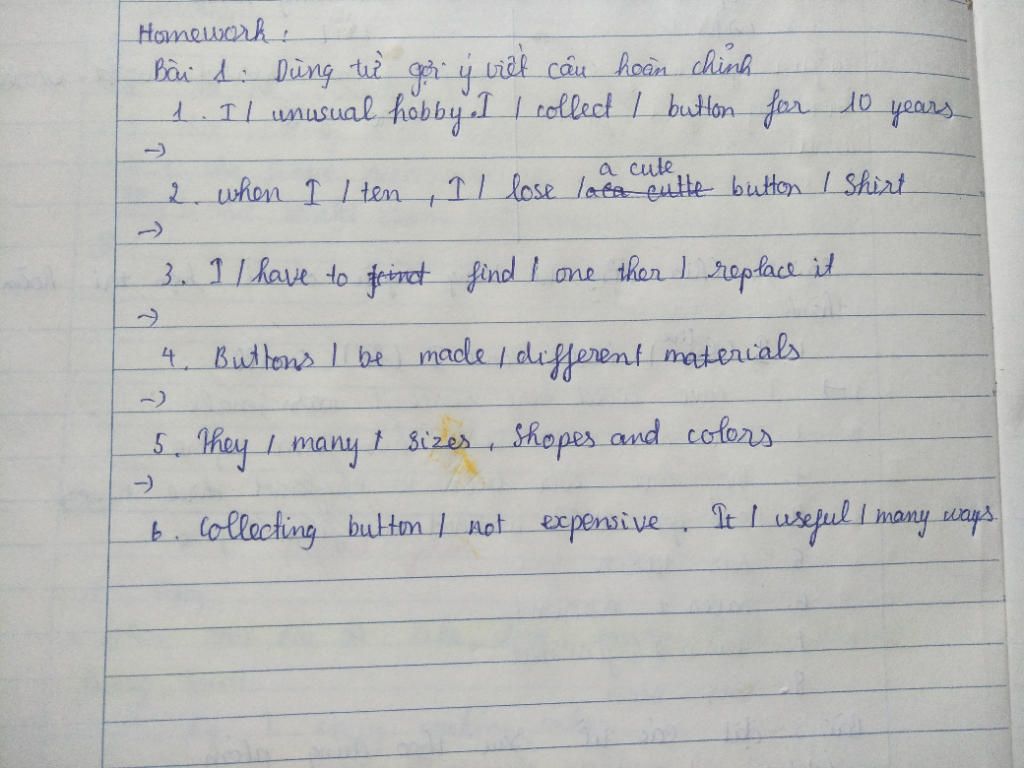 Homework :
Bài 1 : Dùng từ gợi ý viết câu hoàn chỉnh
1 . I / unusual hobby. I / collect / button for 10 years
→
a cute
2 . when I / ten , I / lose / button / shirt
→
3 . I / have to find / one ther / replace it
→
4 . Buttons / be made / different materials
→
5 . They / many / sizes , shopes and colors
→
6 . Collecting button / not expensive . It / useful / many ways